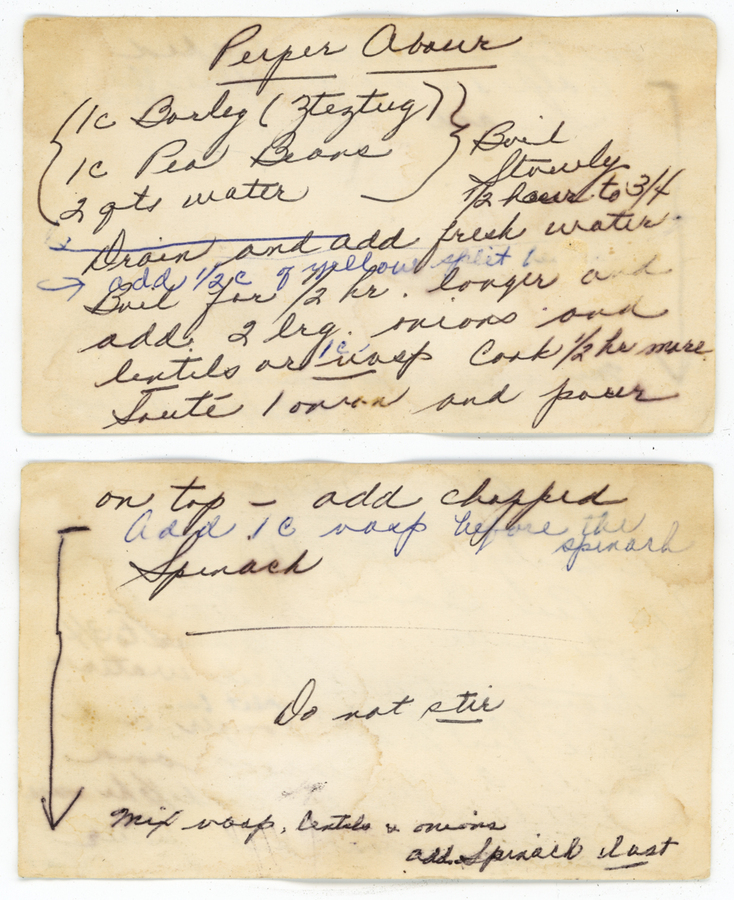 Perper Abour
1c Barley (Zteztug)
1c Pea Beans
2 qts water
Boil
Slowly
1/2 hour to 3/4
Drain and add fresh water
add 1/2 c of yellow split
Boil for 1/2 hr. longer and
add 2 lrg. onions and
lentils or 1c vosp Cook 1/2 hr more
Sauté 1 onion and pour
on top — add chopped
Add 1c vosp before the
spinach
Spinach
Do not stir
Mix vosp, lentils & onions
add Spinach last